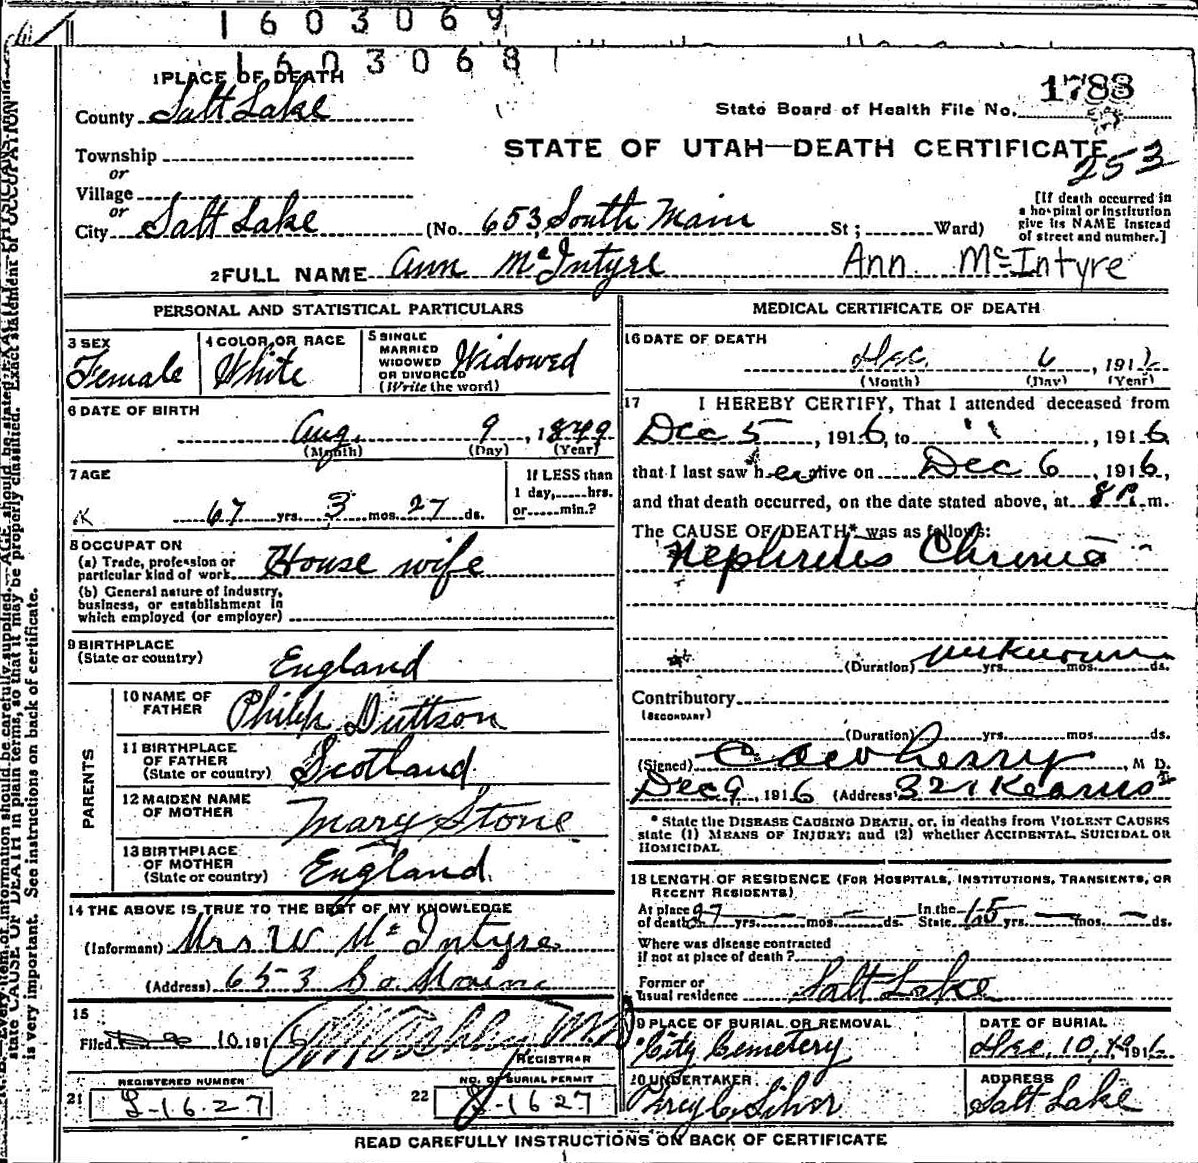 1603069
1603068
1 PLACE OF DEATH
1788
County Salt Lake
State Board of Health File No.
Township
STATE OF UTAH—DEATH CERTIFICATE
253
or
Village
or
City Salt Lake (No. 653, South Main St; Ward)
[If death occurred in
a hospital or institution
give its NAME instead
of street and number.]
2 FULL NAME Ann McIntyre Ann McIntyre
PERSONAL AND STATISTICAL PARTICULARS
3 SEX
Female
4 COLOR OR RACE
White
5 SINGLE
MARRIED
WIDOWED
OR DIVORCED
(Write the word)
Widowed
6 DATE OF BIRTH
Aug. 9, 1849
(Month) (Day) (Year)
7 AGE
67 yrs. 3 mos. 27 ds.
If LESS than
1 day, hrs.
or min.?
8 OCCUPATION
(a) Trade, profession or
particular kind of work House wife
(b) General nature of industry,
business, or establishment in
which employed (or employer)
9 BIRTHPLACE
(State or country) England
PARENTS
10 NAME OF
FATHER Philip Duttson
11 BIRTHPLACE
OF FATHER
(State or country) Scotland
12 MAIDEN NAME
OF MOTHER Mary Stone
13 BIRTHPLACE
OF MOTHER
(State or country) England.
14 THE ABOVE IS TRUE TO THE BEST OF MY KNOWLEDGE
(Informant) Mrs W McIntyre
(Address) 653 So. Main
15
Filed 10, 191
REGISTRAR
REGISTERED NUMBER
21 S-1627
NO. OF BURIAL PERMIT
22 S-1627
MEDICAL CERTIFICATE OF DEATH
16 DATE OF DEATH
Dec. 6, 1916
(Month) (Day) (Year)
17 I HEREBY CERTIFY, That I attended deceased from
Dec 5, 1916, to " ", 1916
that I last saw her alive on Dec 6, 1916,
and that death occurred, on the date stated above, at 8 P. m.
The CAUSE OF DEATH* was as follows:
Nephretis Chronic
(Duration) unknown yrs. mos. ds.
Contributory
(SECONDARY)
(Duration) yrs. mos. ds.
(Signed) M D.
Dec 9, 1916 (Address) 321 Kearns
* State the DISEASE CAUSING DEATH, or, in deaths from VIOLENT CAUSES
state (1) MEANS OF INJURY; and (2) whether ACCIDENTAL, SUICIDAL OR
HOMICIDAL
18 LENGTH OF RESIDENCE (FOR HOSPITALS, INSTITUTIONS, TRANSIENTS, OR
RECENT RESIDENTS)
At place
of death yrs. — mos. — ds. In the
State yrs. — mos. — ds.
Where was disease contracted
if not at place of death?
Former or
usual residence Salt Lake
19 PLACE OF BURIAL OR REMOVAL
City Cemetery
DATE OF BURIAL
Dec. 10, 1916
20 UNDERTAKER
ADDRESS
Salt Lake
READ CAREFULLY INSTRUCTIONS ON BACK OF CERTIFICATE
state CAUSE OF DEATH in plain terms, so that it may be properly classified. Exact statement of OCCUPATION
is very important. See instructions on back of certificate.